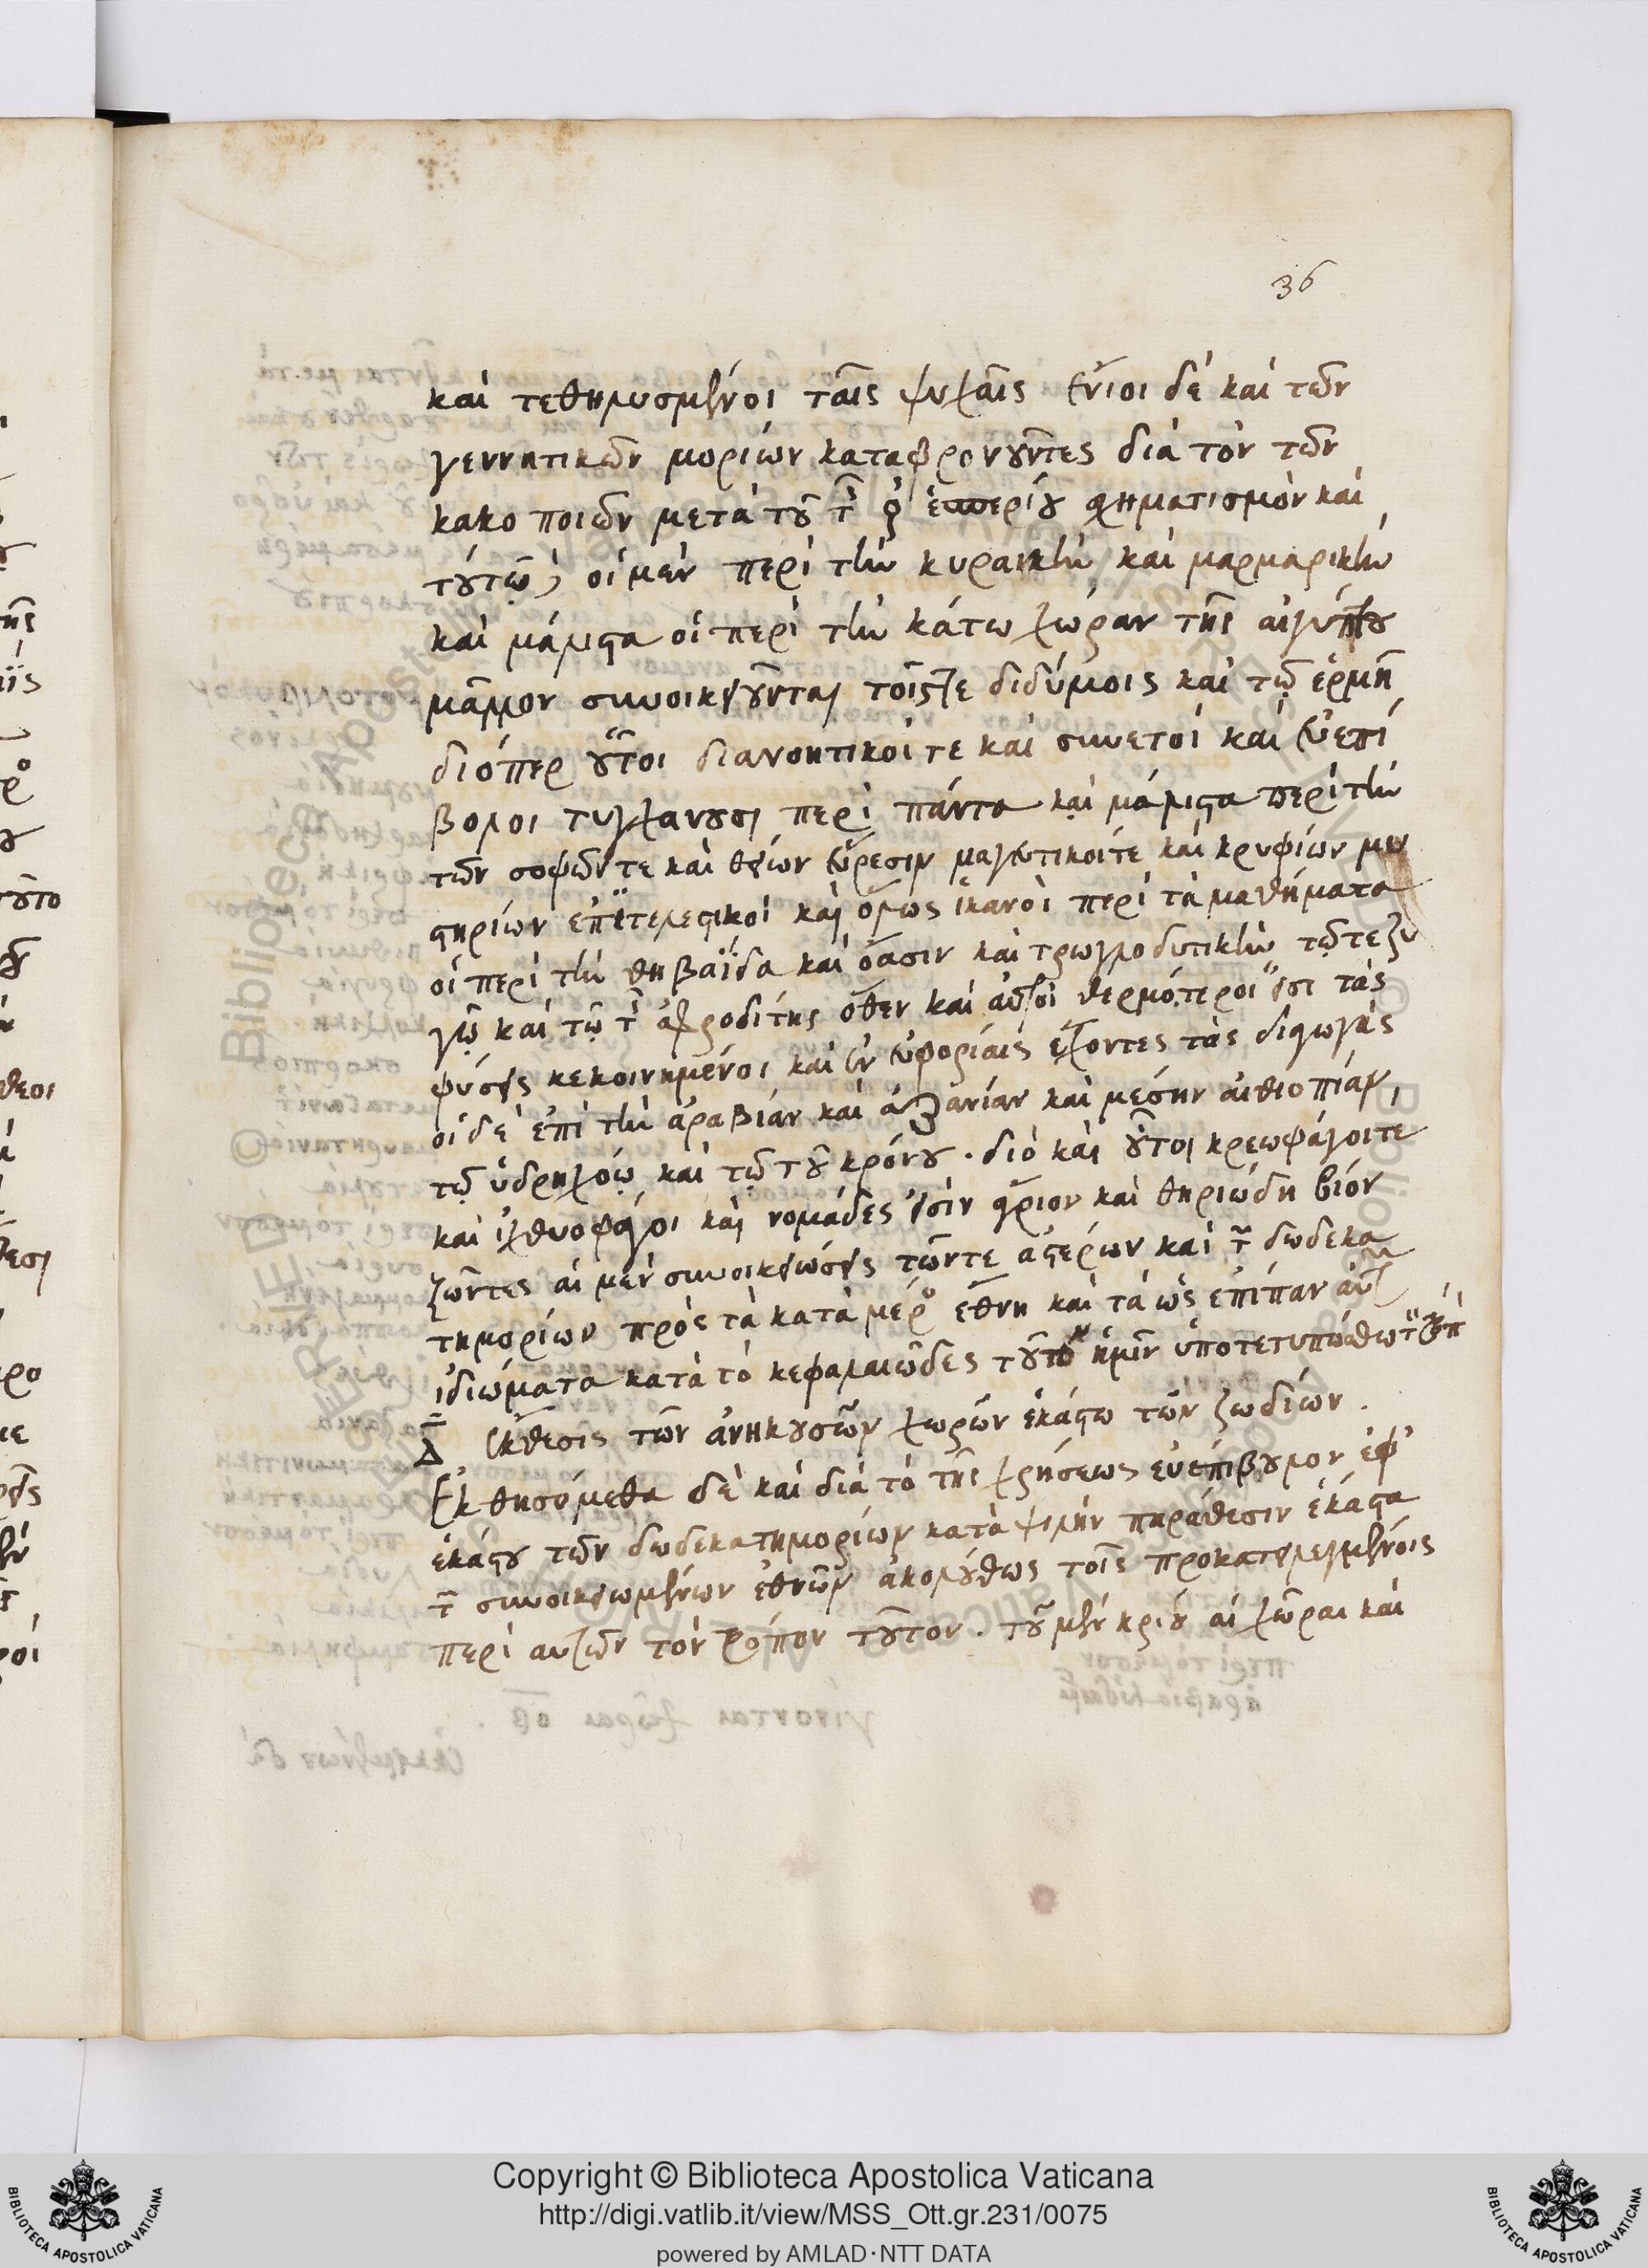 36
καὶ τεθηλυσμένοι ταῖς ψυχαῖς ἔνιοι δὲ καὶ τῶν
γεννητικῶν μορίων καταφρονοῦντες διὰ τὸν τῶν
κακοποιῶν μετὰ τοῦ τῆς ♀ ἑσπερίου σχηματισμὸν καὶ
τούτων οἱ μὲν περὶ τὴν κυραικὴν καὶ μαρμαρικὴν
καὶ μάλιστα οἱ περὶ τὴν κάτω χώραν τῆς αἰγύπτου
μᾶλλον συνοικειοῦνται τοῖς τε διδύμοις καὶ τῷ ἑρμῆ
διόπερ οὗτοι διανοητικοί τε καὶ συνετοὶ καὶ εὐεπί
βολοι τυγχανουσι περὶ πάντα καὶ μάλιστα περὶ τὴν
τῶν σοφῶν τε καὶ θείων εὕρεσιν μαγευτικοί τε καὶ κρυφίων μυ
στηρίων ἐπιτελεστικοὶ καὶ ὅλως ἱκανοὶ περὶ τὰ μαθήματα
οἱ περὶ τὴν θηβαΐδα καὶ ὄασιν καὶ τρωγλοδυτικὴν τῷ τε ζυ
γῷ καὶ τῷ τῆς ἀφροδίτης ὅθεν καὶ αὐτοὶ θερμότεροί εἰσι τὰς
φύσεις κεκοινημένοι καὶ ἐν εὐφορίαις ἔχοντες τὰς διαγωγὰς
οἱ δὲ ἐπὶ τὴν ἀραβίαν καὶ ἀζανίαν καὶ μέσην αἰθιοπίαν,
τῷ ὑδρηχόῳ καὶ τῷ τοῦ κρόνου · διὸ καὶ οὗτοι κρεωφάγοι τε
καὶ ἰχθυοφάγοι καὶ νομάδες εἰσὶν ἄγριον καὶ θηριώδη βίον
ζῶντες αἱ μὲν συνοικειώσεις τῶν τε ἀστέρων καὶ τῶν δωδεκα
τημορίων πρὸς τὰ κατὰ μέρος ἔθνη καὶ τὰ ὡς ἐπίπαν αὐτῶν
ἰδιώματα κατὰ τὸ κεφαλαιῶδες τοῦτον ἡμῖν ὑποτετυπώσθω τὸν τρόπον
Δ Ἔκθεσις τῶν ἀνηκουσῶν χωρῶν ἑκάστω τῶν ζωδίων .
Ἐκθησόμεθα δὲ καὶ διὰ τὸ τῆς χρήσεως εὐεπίβουλον ἐφ'
ἑκάστου τῶν δωδεκατημορίων κατὰ ψιλὴν παράθεσιν ἕκαστα
τῶν συνοικειωμένων ἐθνῶν ἀκολούθως τοῖς προκατειλεγμένοις
περὶ αυτῶν τὸν τρόπον τοῦτον . τοῦ μὲν κριοῦ αἱ χῶραι καὶ
Copyright © Biblioteca Apostolica Vaticana
http://digi.vatlib.it/view/MSS_Ott.gr.231/0075
powered by AMLAD·NTT DATA
BIBLIOTECA APOSTOLICA VATICANA
BIBLIOTECA APOSTOLICA VATICANA